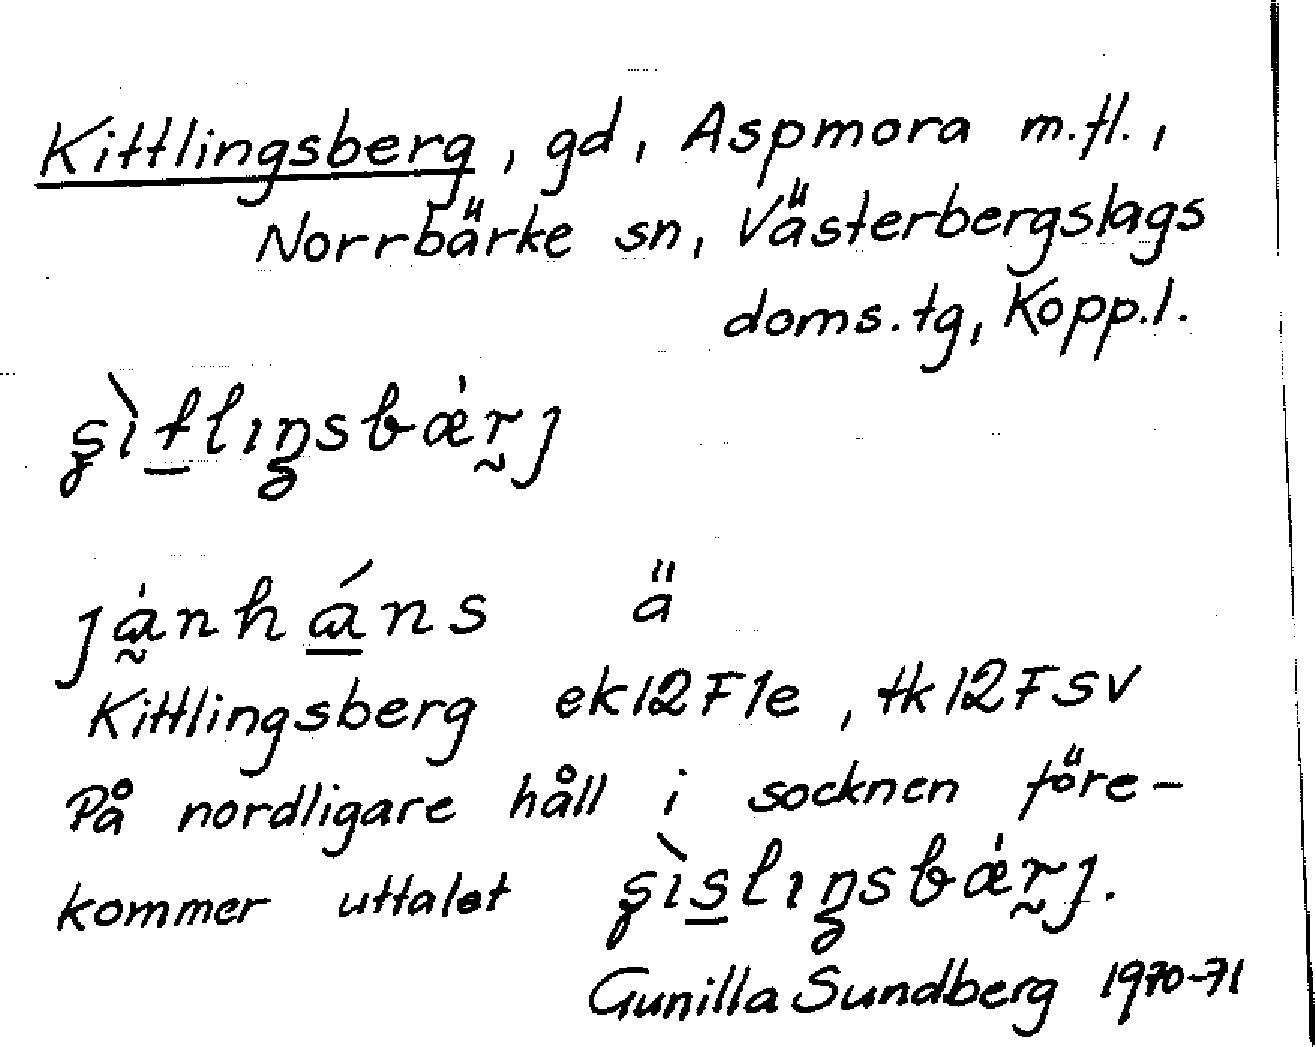 Kittlingsberg, gd, Aspmora m.fl.,
Norrbärke sn, Västerbergslags
doms.tg, Kopp.l.
ʂìt̲lıŋsbæ̍r̰ȷ
ȷa̰̍nhá̲ns ä
Kittlingsberg ek12F1e, tk12FSV
På nordligare håll i socknen före-
kommer uttalet ʂìs̲lıŋsbæ̍r̰ȷ.
Gunilla Sundberg 1970-71